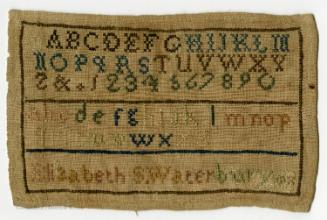 ABCDEFGHIJKLM
NOPQRSTUVWXY
Z&.1234567890
abcdefghijklmnop
wx
Elizabeth S. Waterbury